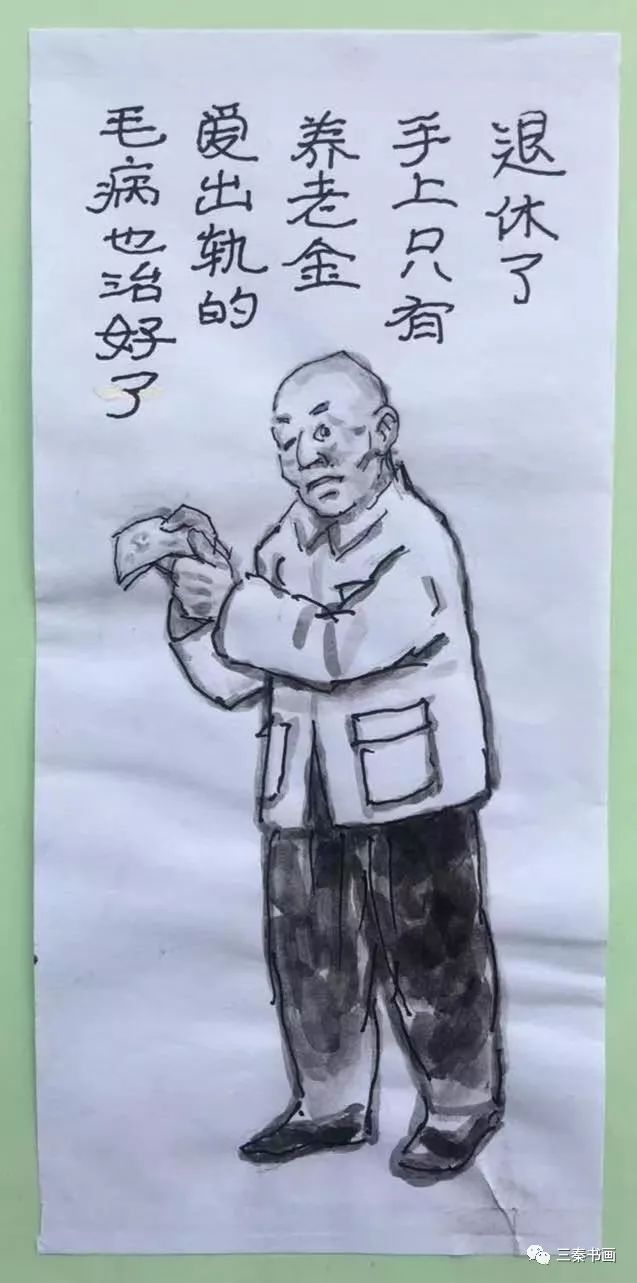 退休了
手上只有
养老金
爱出轨的
毛病也治好了
三秦书画